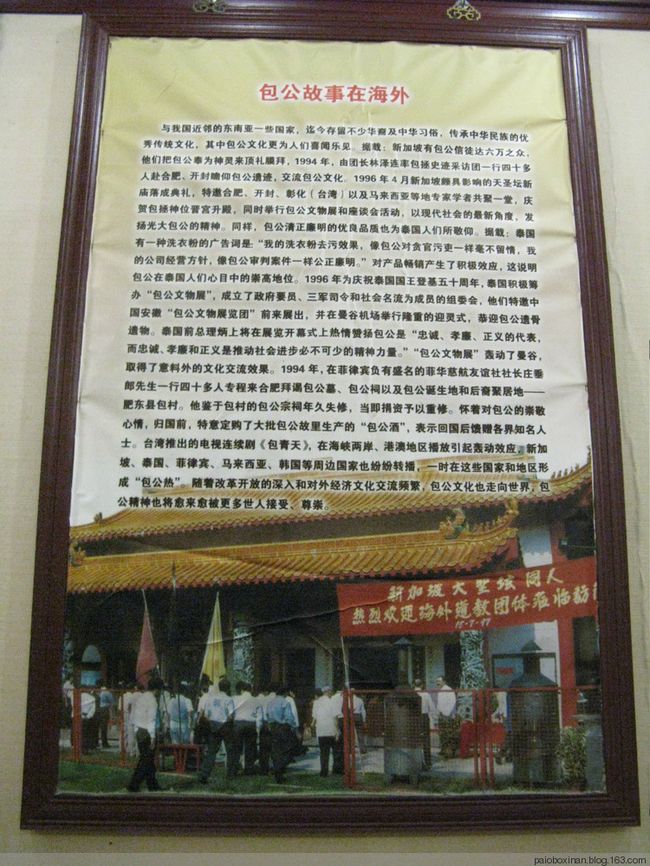 包公故事在海外
与我国近邻的东南亚一些国家，迄今存留不少华裔及中华习俗，传承中华民族的优
秀传统文化，其中包公文化更为人们喜闻乐见。据载：新加坡有包公信徒达六万之众，
他们把包公奉为神灵来顶礼膜拜，1994年，由团长林泽连率包拯史迹采访团一行四十多
人赴合肥、开封瞻仰包公遗迹，交流包公文化。1996年4月新加坡颇具影响的天圣坛新
庙落成典礼，特邀合肥、开封、彰化（台湾）以及马来西亚等地专家学者共聚一堂，庆
贺包拯神位晋宫升殿，同时举行包公文物展和座谈会活动，以现代社会的最新角度，发
扬光大包公的精神。同样，包公清正廉明的优良品质也为泰国人们所敬仰。据载：泰国
有一种洗衣粉的广告词是：“我的洗衣粉去污效果，像包公对贪官污吏一样毫不留情，我
的公司经营方针，像包公审判案件一样公正廉明。”对产品畅销产生了积极效应，这说明
包公在泰国人们心目中的崇高地位。1996年为庆祝泰国国王登基五十周年，泰国积极筹
办“包公文物展”，成立了政府要员、三军司令和社会名流为成员的组委会，他们特邀中
国安徽“包公文物展览团”前来展出，并在曼谷机场举行隆重的迎灵式，恭迎包公遗骨
遗物。泰国前总理炳上将在展览开幕式上热情赞扬包公是“忠诚、孝廉、正义的代表，
而忠诚、孝廉和正义是推动社会进步必不可少的精神力量。”“包公文物展”轰动了曼谷，
取得了意料外的文化交流效果。1994年，在菲律宾负有盛名的菲华慈航友谊社社长庄垂
郎先生一行四十多人专程来合肥拜谒包公墓、包公祠以及包公诞生地和后裔聚居地——
肥东县包村。他鉴于包村的包公宗祠年久失修，当即捐资予以重修。怀着对包公的崇敬
心情，归国前，特意定购了大批包公故里生产的“包公酒”，表示回国后馈赠各界知名人
士。台湾推出的电视连续剧《包青天》，在海峡两岸、港澳地区播放引起轰动效应，新加
坡、泰国、菲律宾、马来西亚、韩国等周边国家也纷纷转播，一时在这些国家和地区形
成“包公热”。随着改革开放的深入和对外经济文化交流频繁，包公文化也走向世界，包
公精神也将愈来愈被更多世人接受、尊崇。
新加坡大聖坛同人
热烈欢迎海外道教团体莅临訪
15-7-97
paioboxinan.blog.163.com